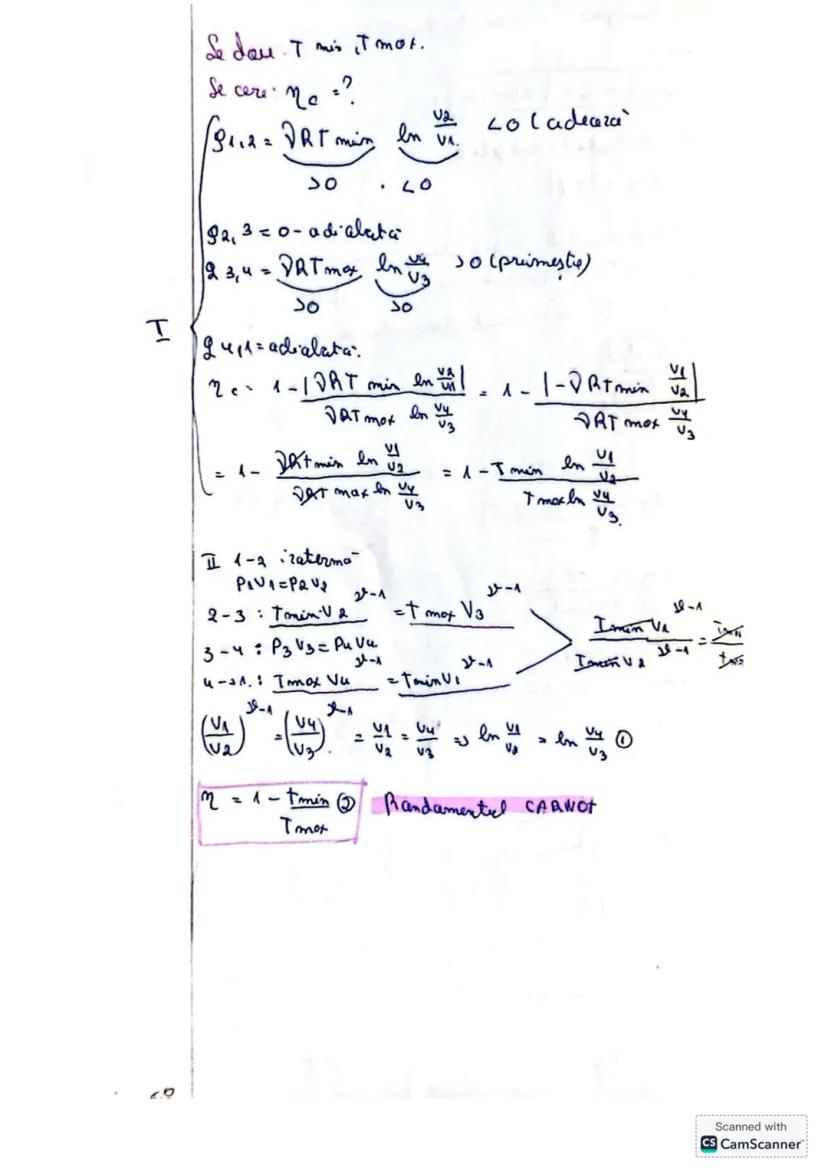 Se dau: T min, T max.
Se cere: ηc = ?
I
Q1,2 = νRT min ln V2/V1 <0 (cedează
>0 . <0
Q2,3 = 0 - adiabată
Q3,4 = νRT max ln V4/V3 >0 (primește)
>0 >0
Q4,1 = adiabată.
ηc = 1 - |νRT min ln V2/V1| / νRT max ln V4/V3 = 1 - |-νRT min V1/V2| / νRT max V4/V3
= 1 - νRT min ln V1/V2 / νRT max ln V4/V3 = 1 - T min ln V1/V2 / T max ln V4/V3.
II 1-2 izotermă
P1V1 = P2V2
2-3 : Tmin·V2^γ-1 = T max V3^γ-1
3-4 : P3V3 = P4V4
4->1. : Tmax V4^γ-1 = TminV1^γ-1
(V1/V2)^γ-1 = (V4/V3)^γ-1 = V1/V2 = V4/V3 => ln V1/V2 = ln V4/V3 ①
η = 1 - tmin/Tmax ② Randamentul CARNOT
Scanned with
CS CamScanner